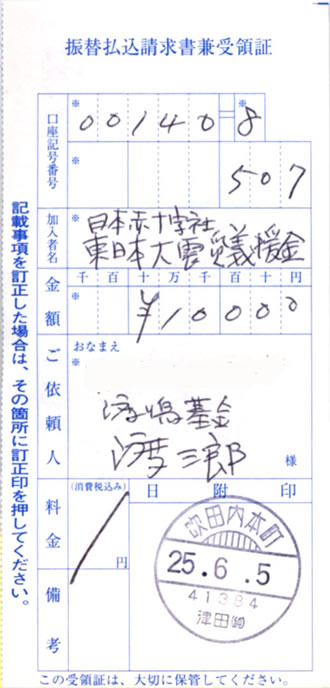 振替払込請求書兼受領証
口座記号番号
※ 00140 ※ 8
※ 507
加入者名
※
日本赤十字社
東日本大震災義援金
金額
千 百 十 万 千 百 十 円
※ ¥10000
ご依頼人
おなまえ
※
基金
三郎
様
料金
(消費税込み)
円
日 附 印
吹田内本町
25.6.5
41384
津田
備考
記載事項を訂正した場合は、その箇所に訂正印を押してください。
この受領証は、大切に保管してください。